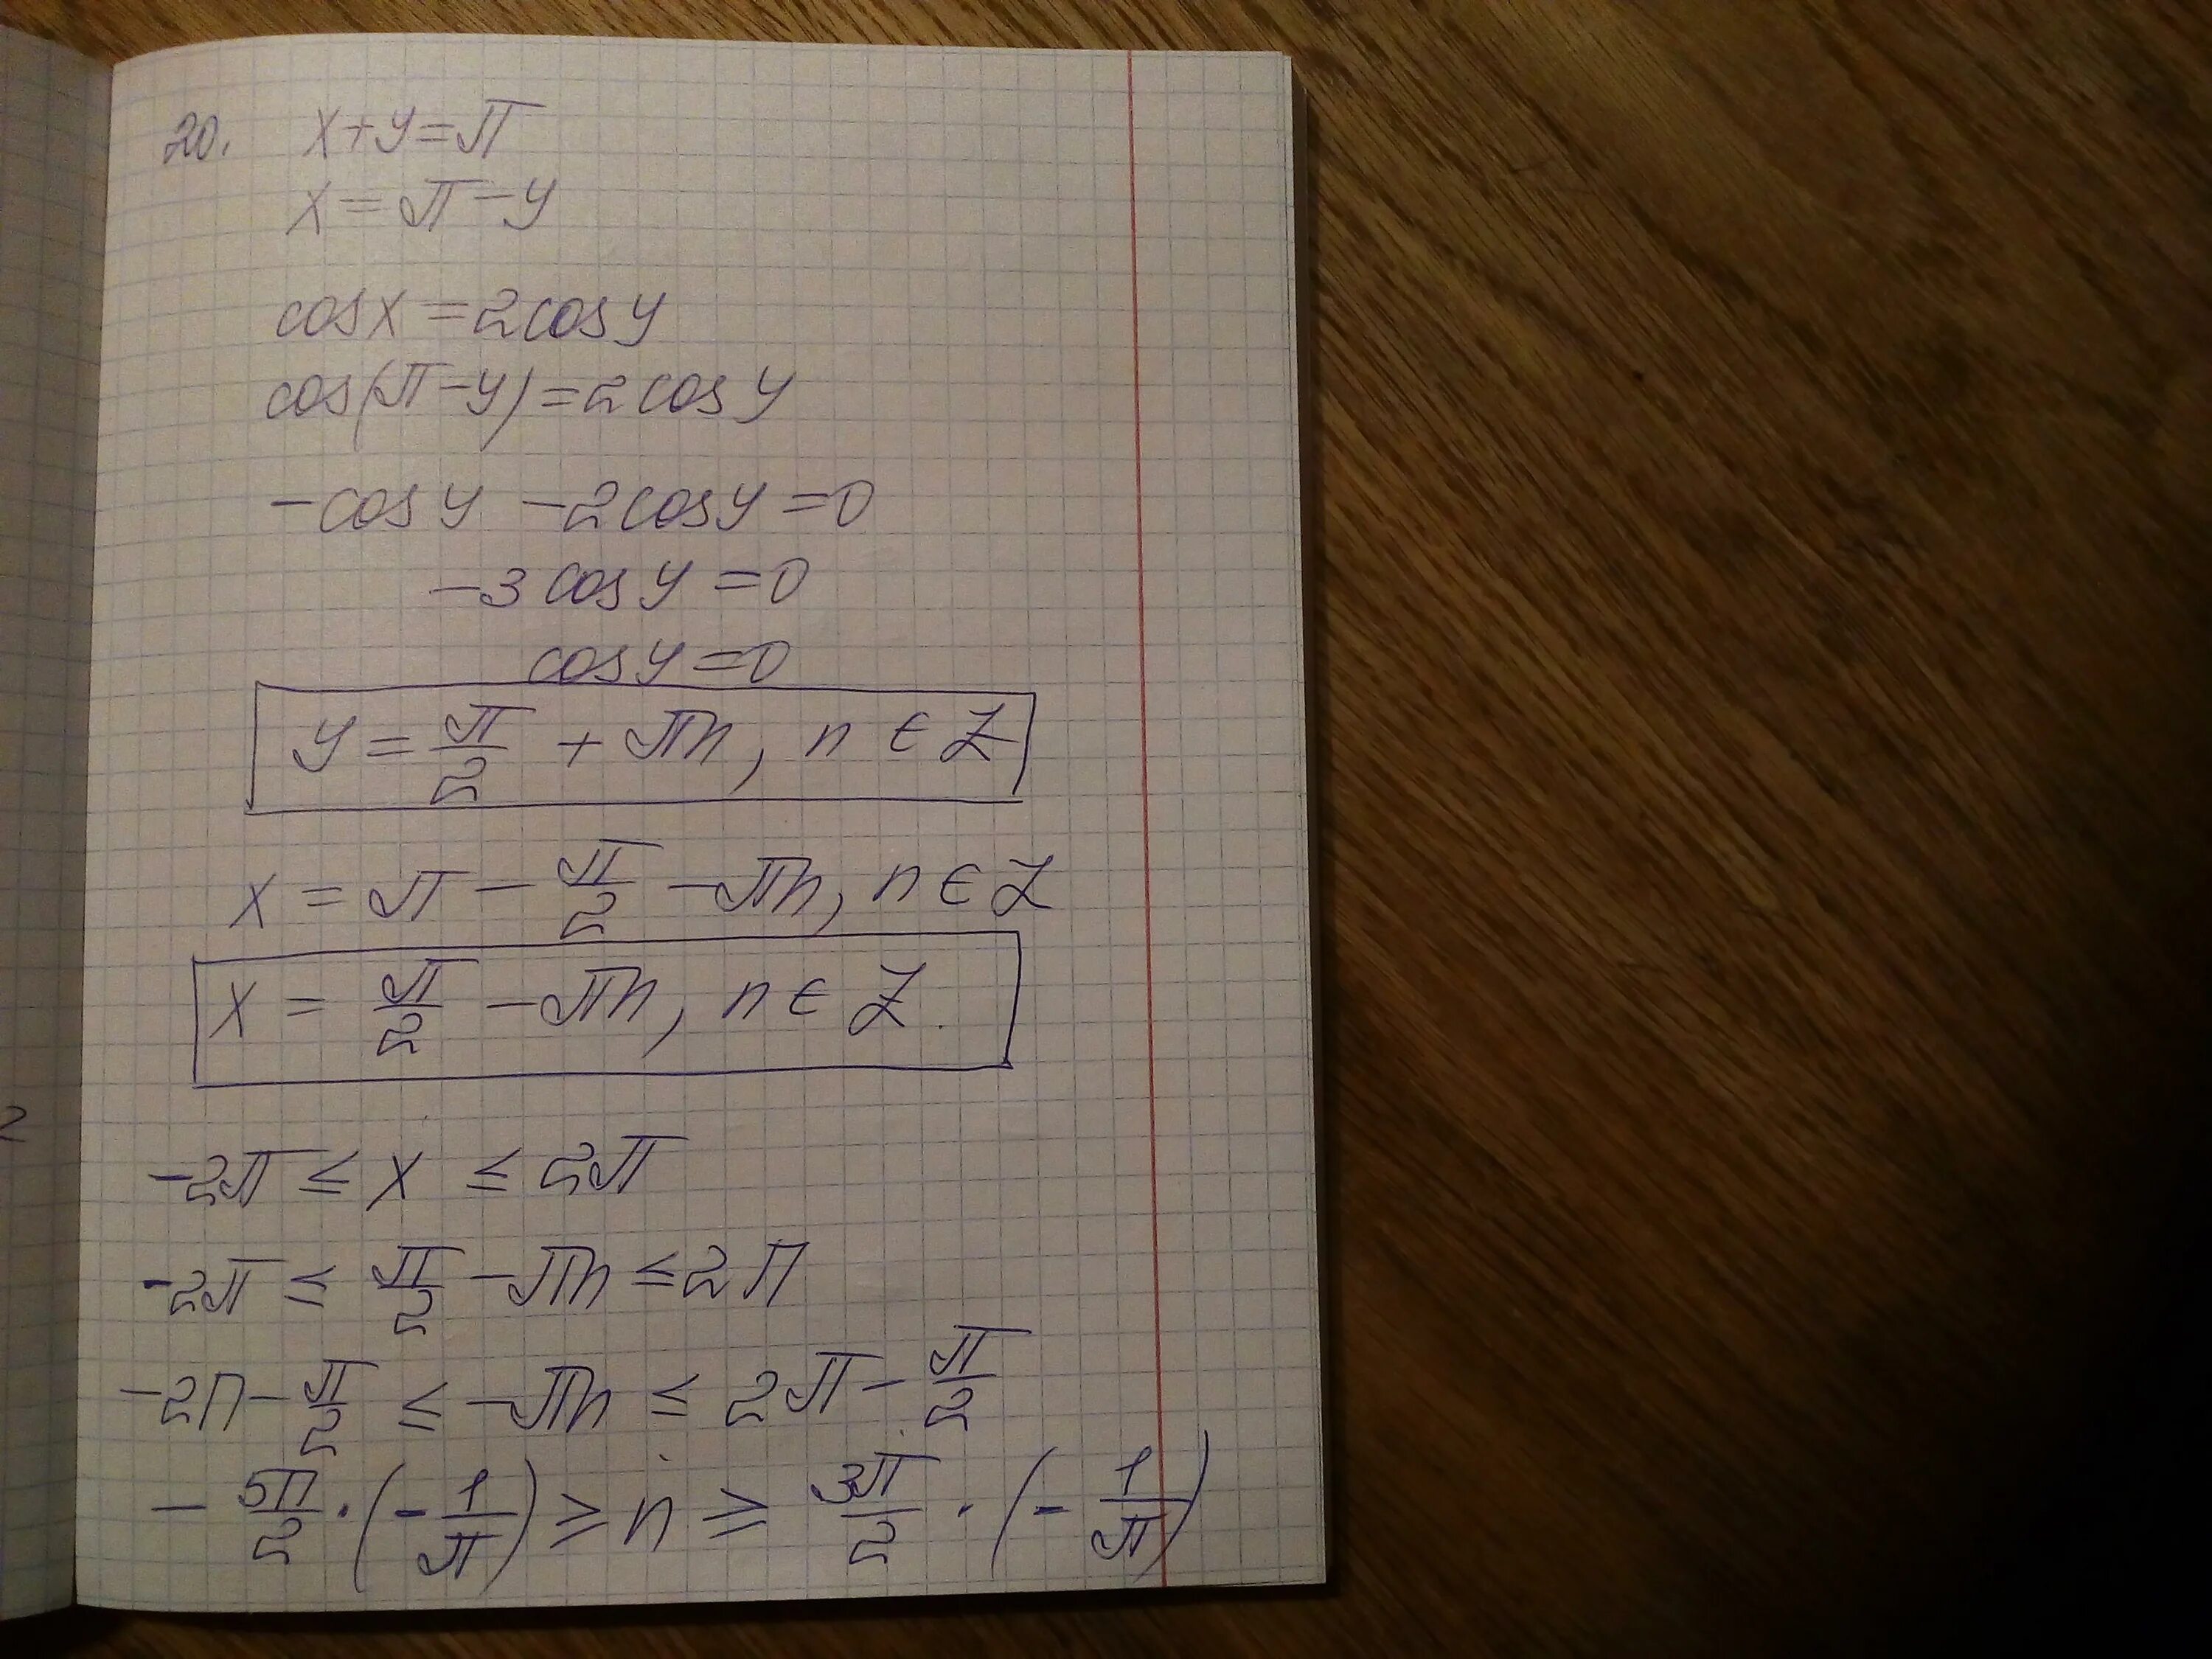 20. x+y=π
x = π-y
cos x = 2 cos y
cos(π-y) = 2 cos y
-cos y -2 cos y = 0
-3 cos y = 0
cos y = 0
y = π/2 + πn, n ∈ Z
x = π - π/2 - πn, n ∈ Z
x = π/2 - πn, n ∈ Z.
-2π ≤ x ≤ 2π
-2π ≤ π/2 - πn ≤ 2π
-2π - π/2 ≤ -πn ≤ 2π - π/2
- 5π/2 · (- 1/π) ≥ n ≥ 3π/2 · (- 1/π)
2